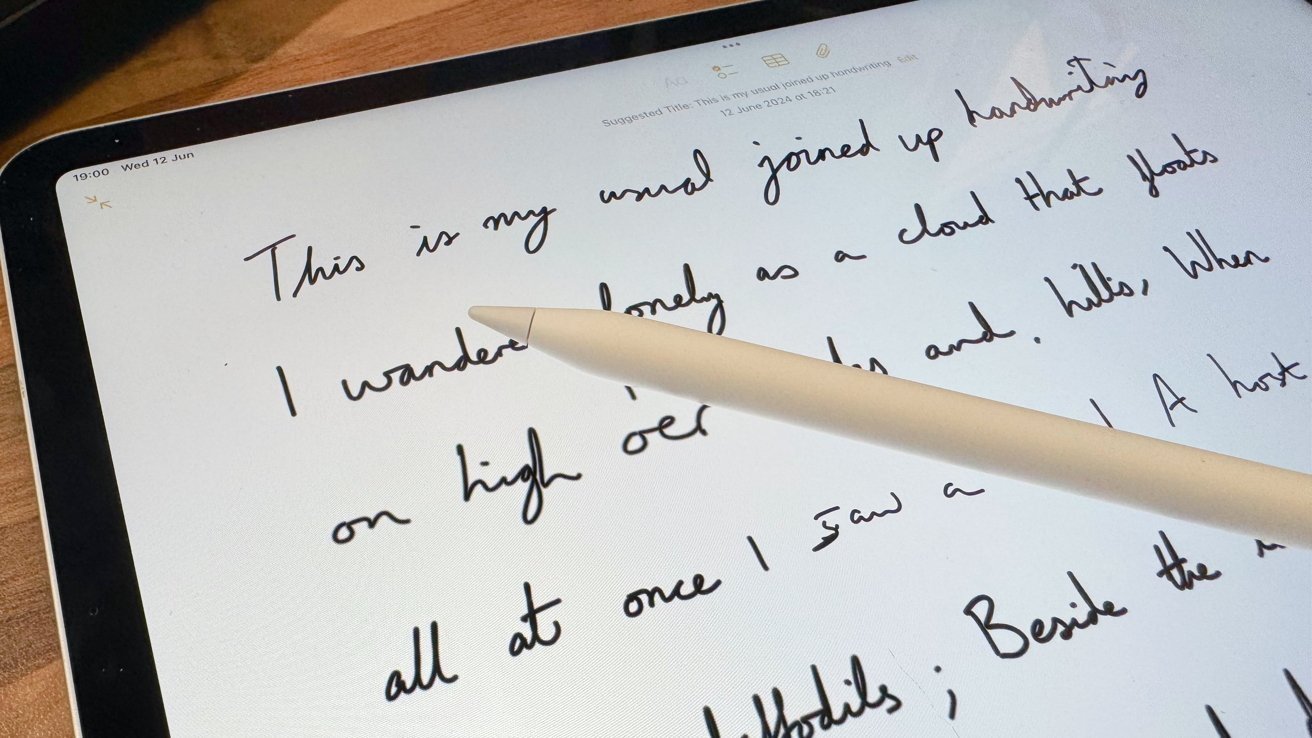 19:00 Wed 12 Jun
Suggested Title: This is my usual joined up handwriting Edit
12 June 2024 at 18:21
This is my usual joined up handwriting
I lonely as a cloud that floats
on high o'er and, hills, When
all at once I saw a A host
daffodils; Beside the